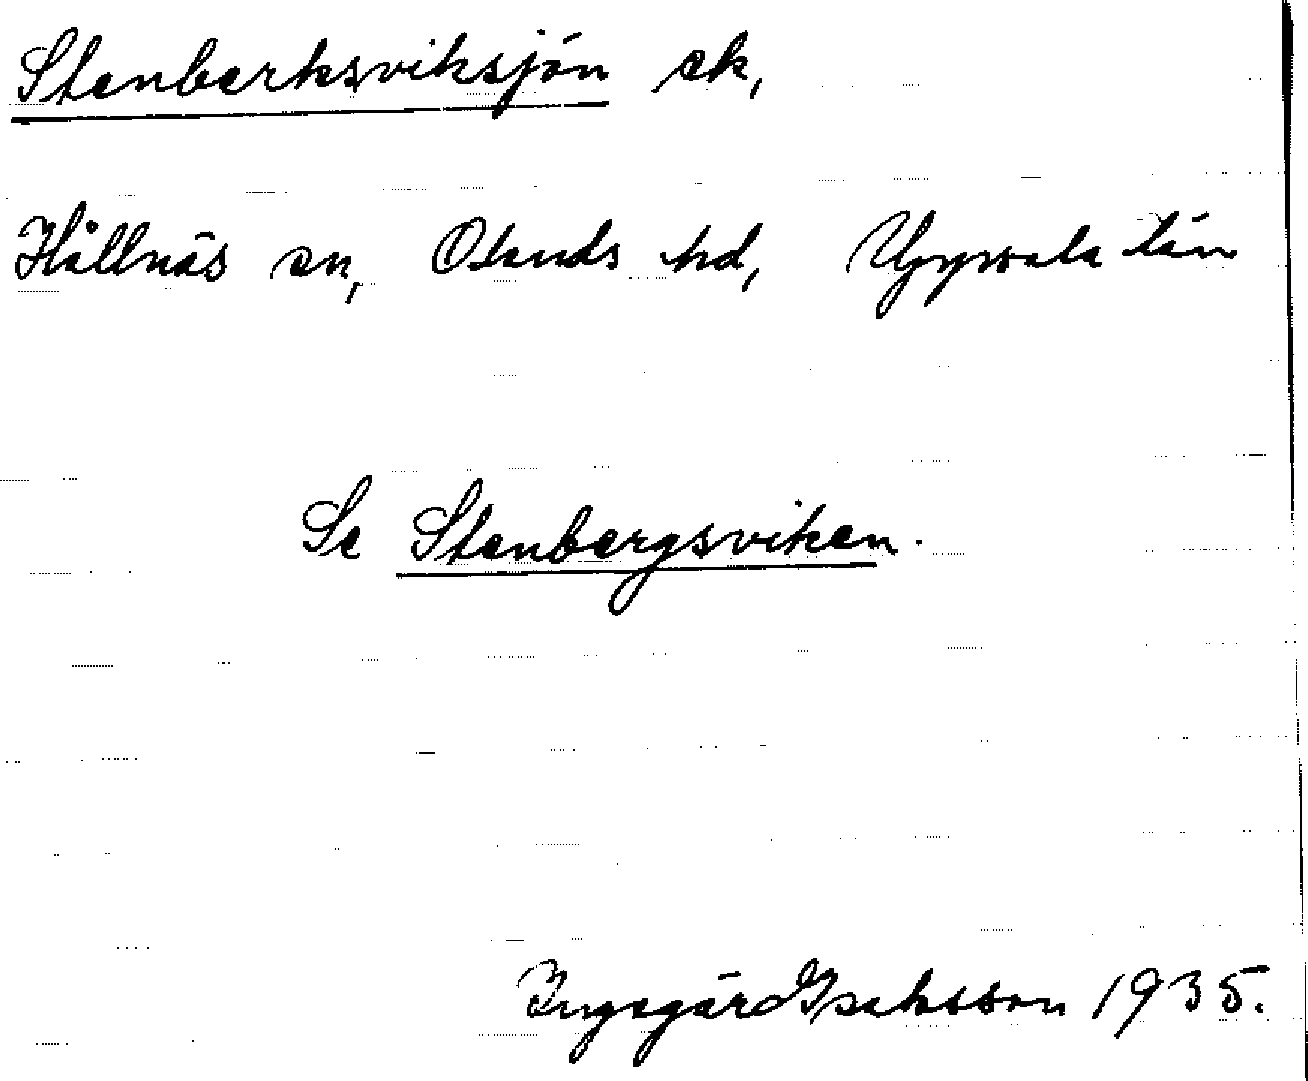 Stenberksviksjön ek,
Hållnäs sn, Olands hd, Uppsala län
Se Stenbergsviken.
Ingegärd Isaksson 1935.